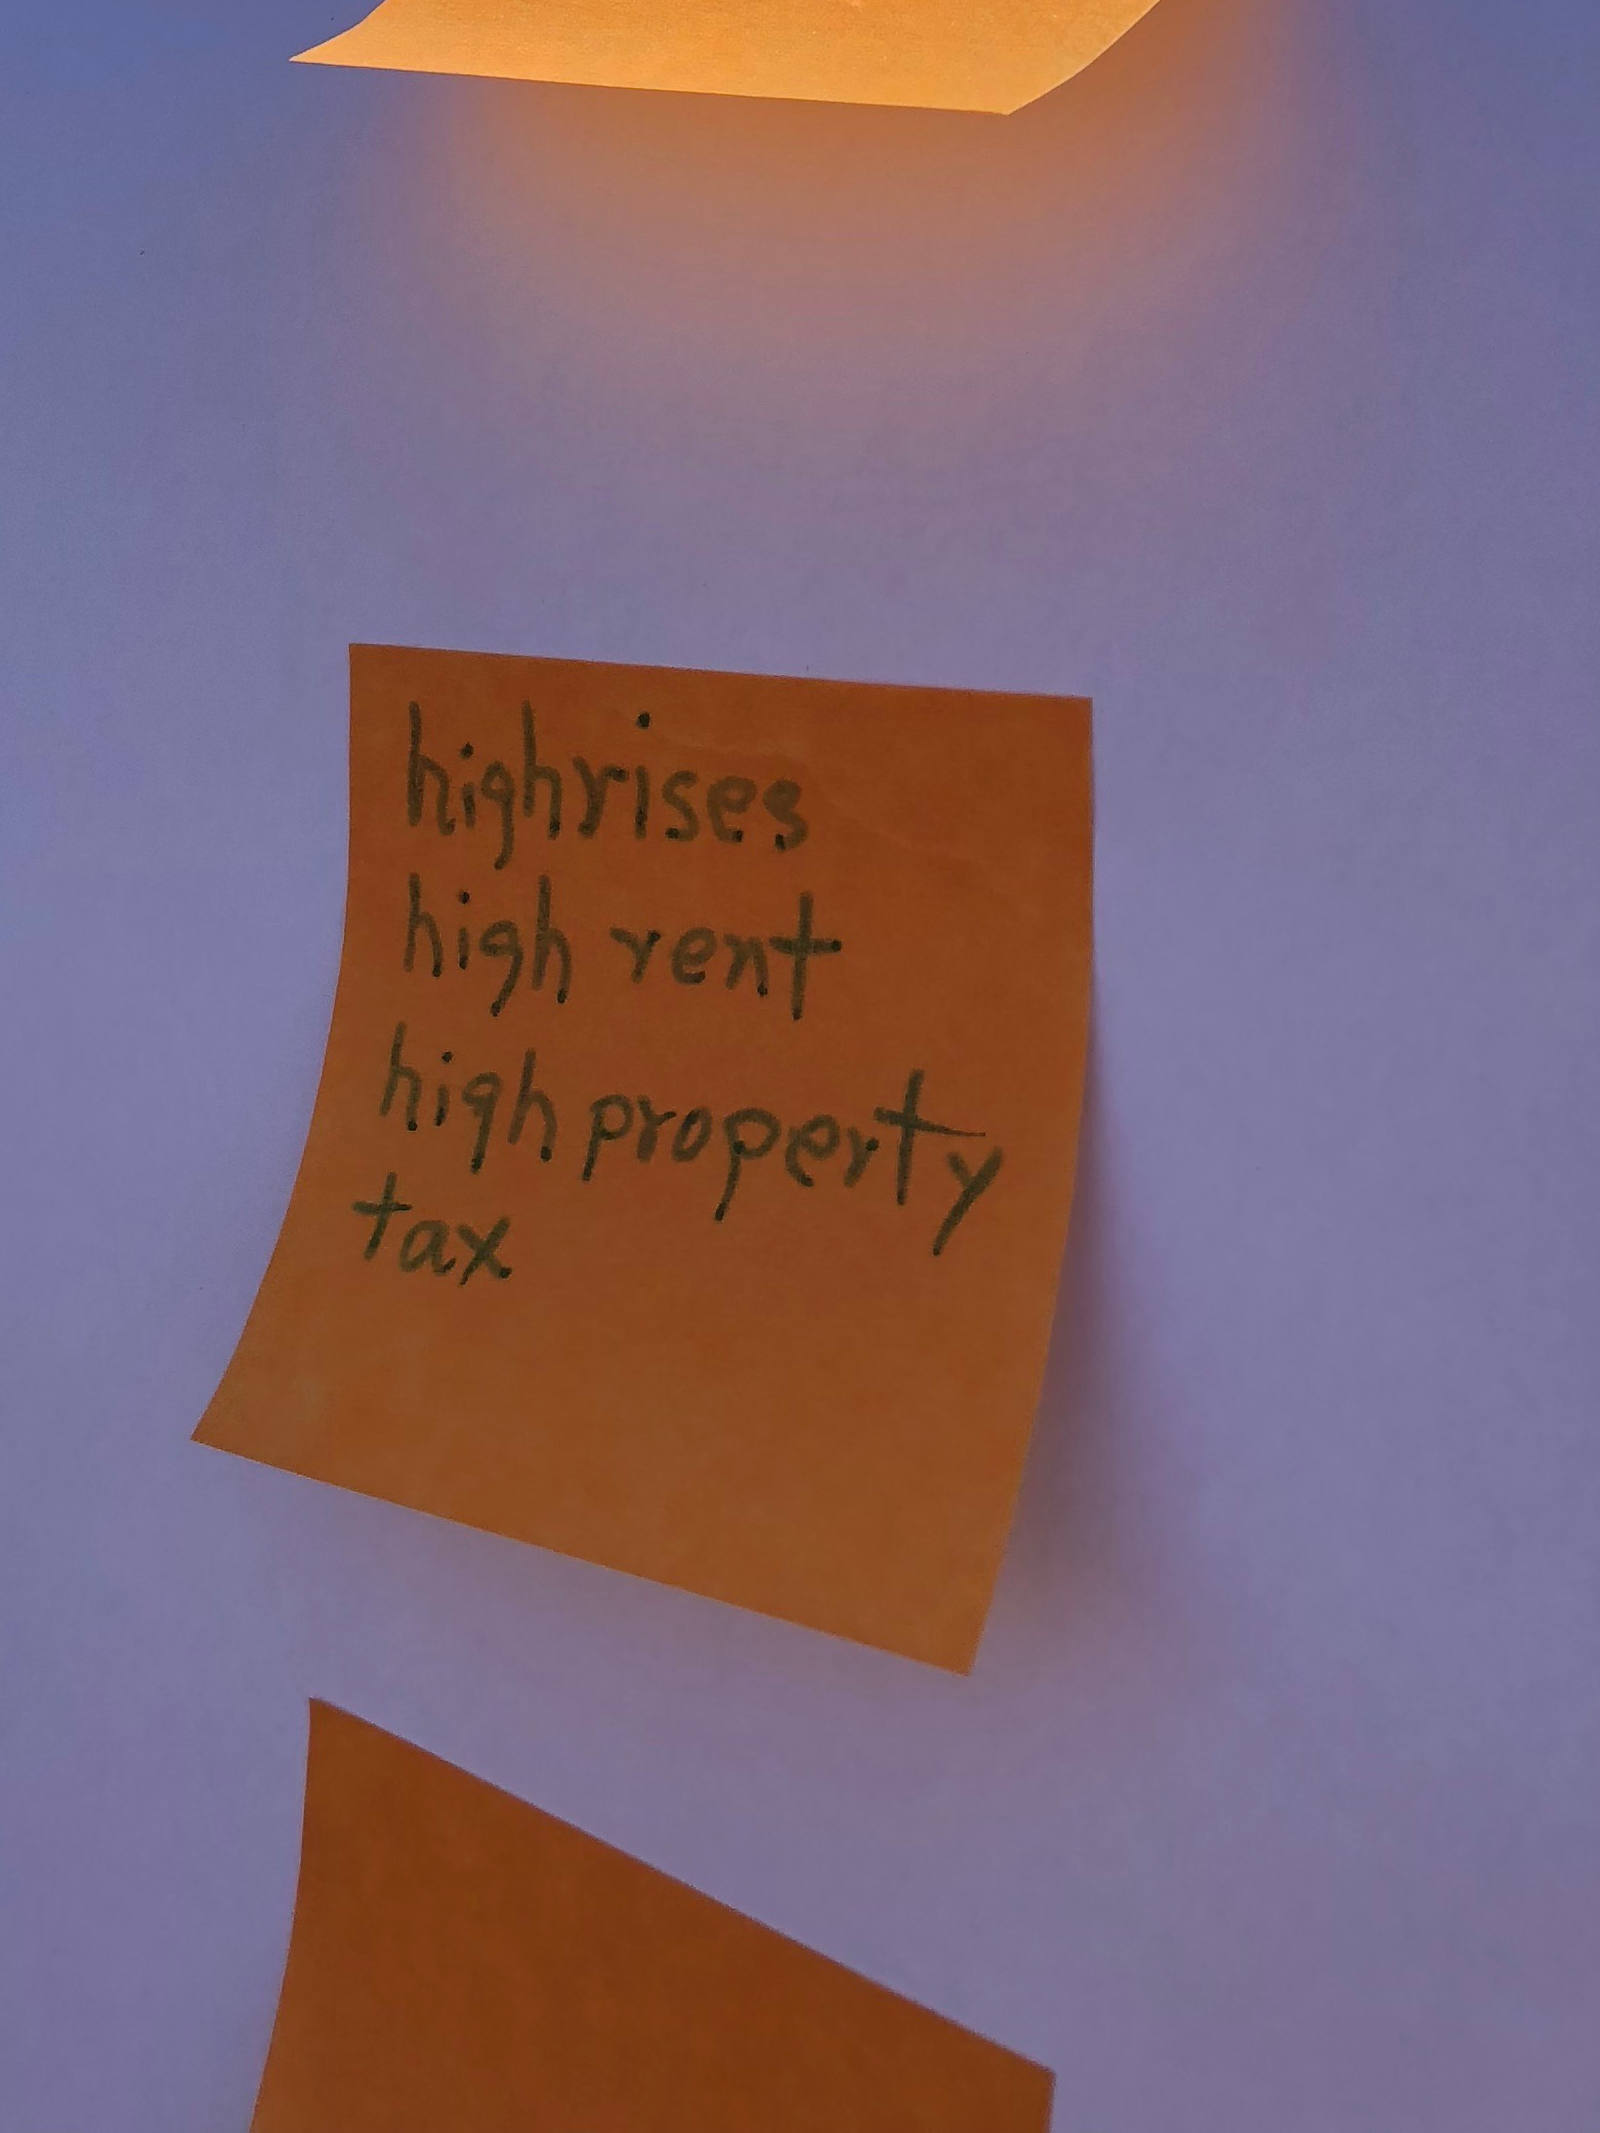 highrises
high rent
high property
tax